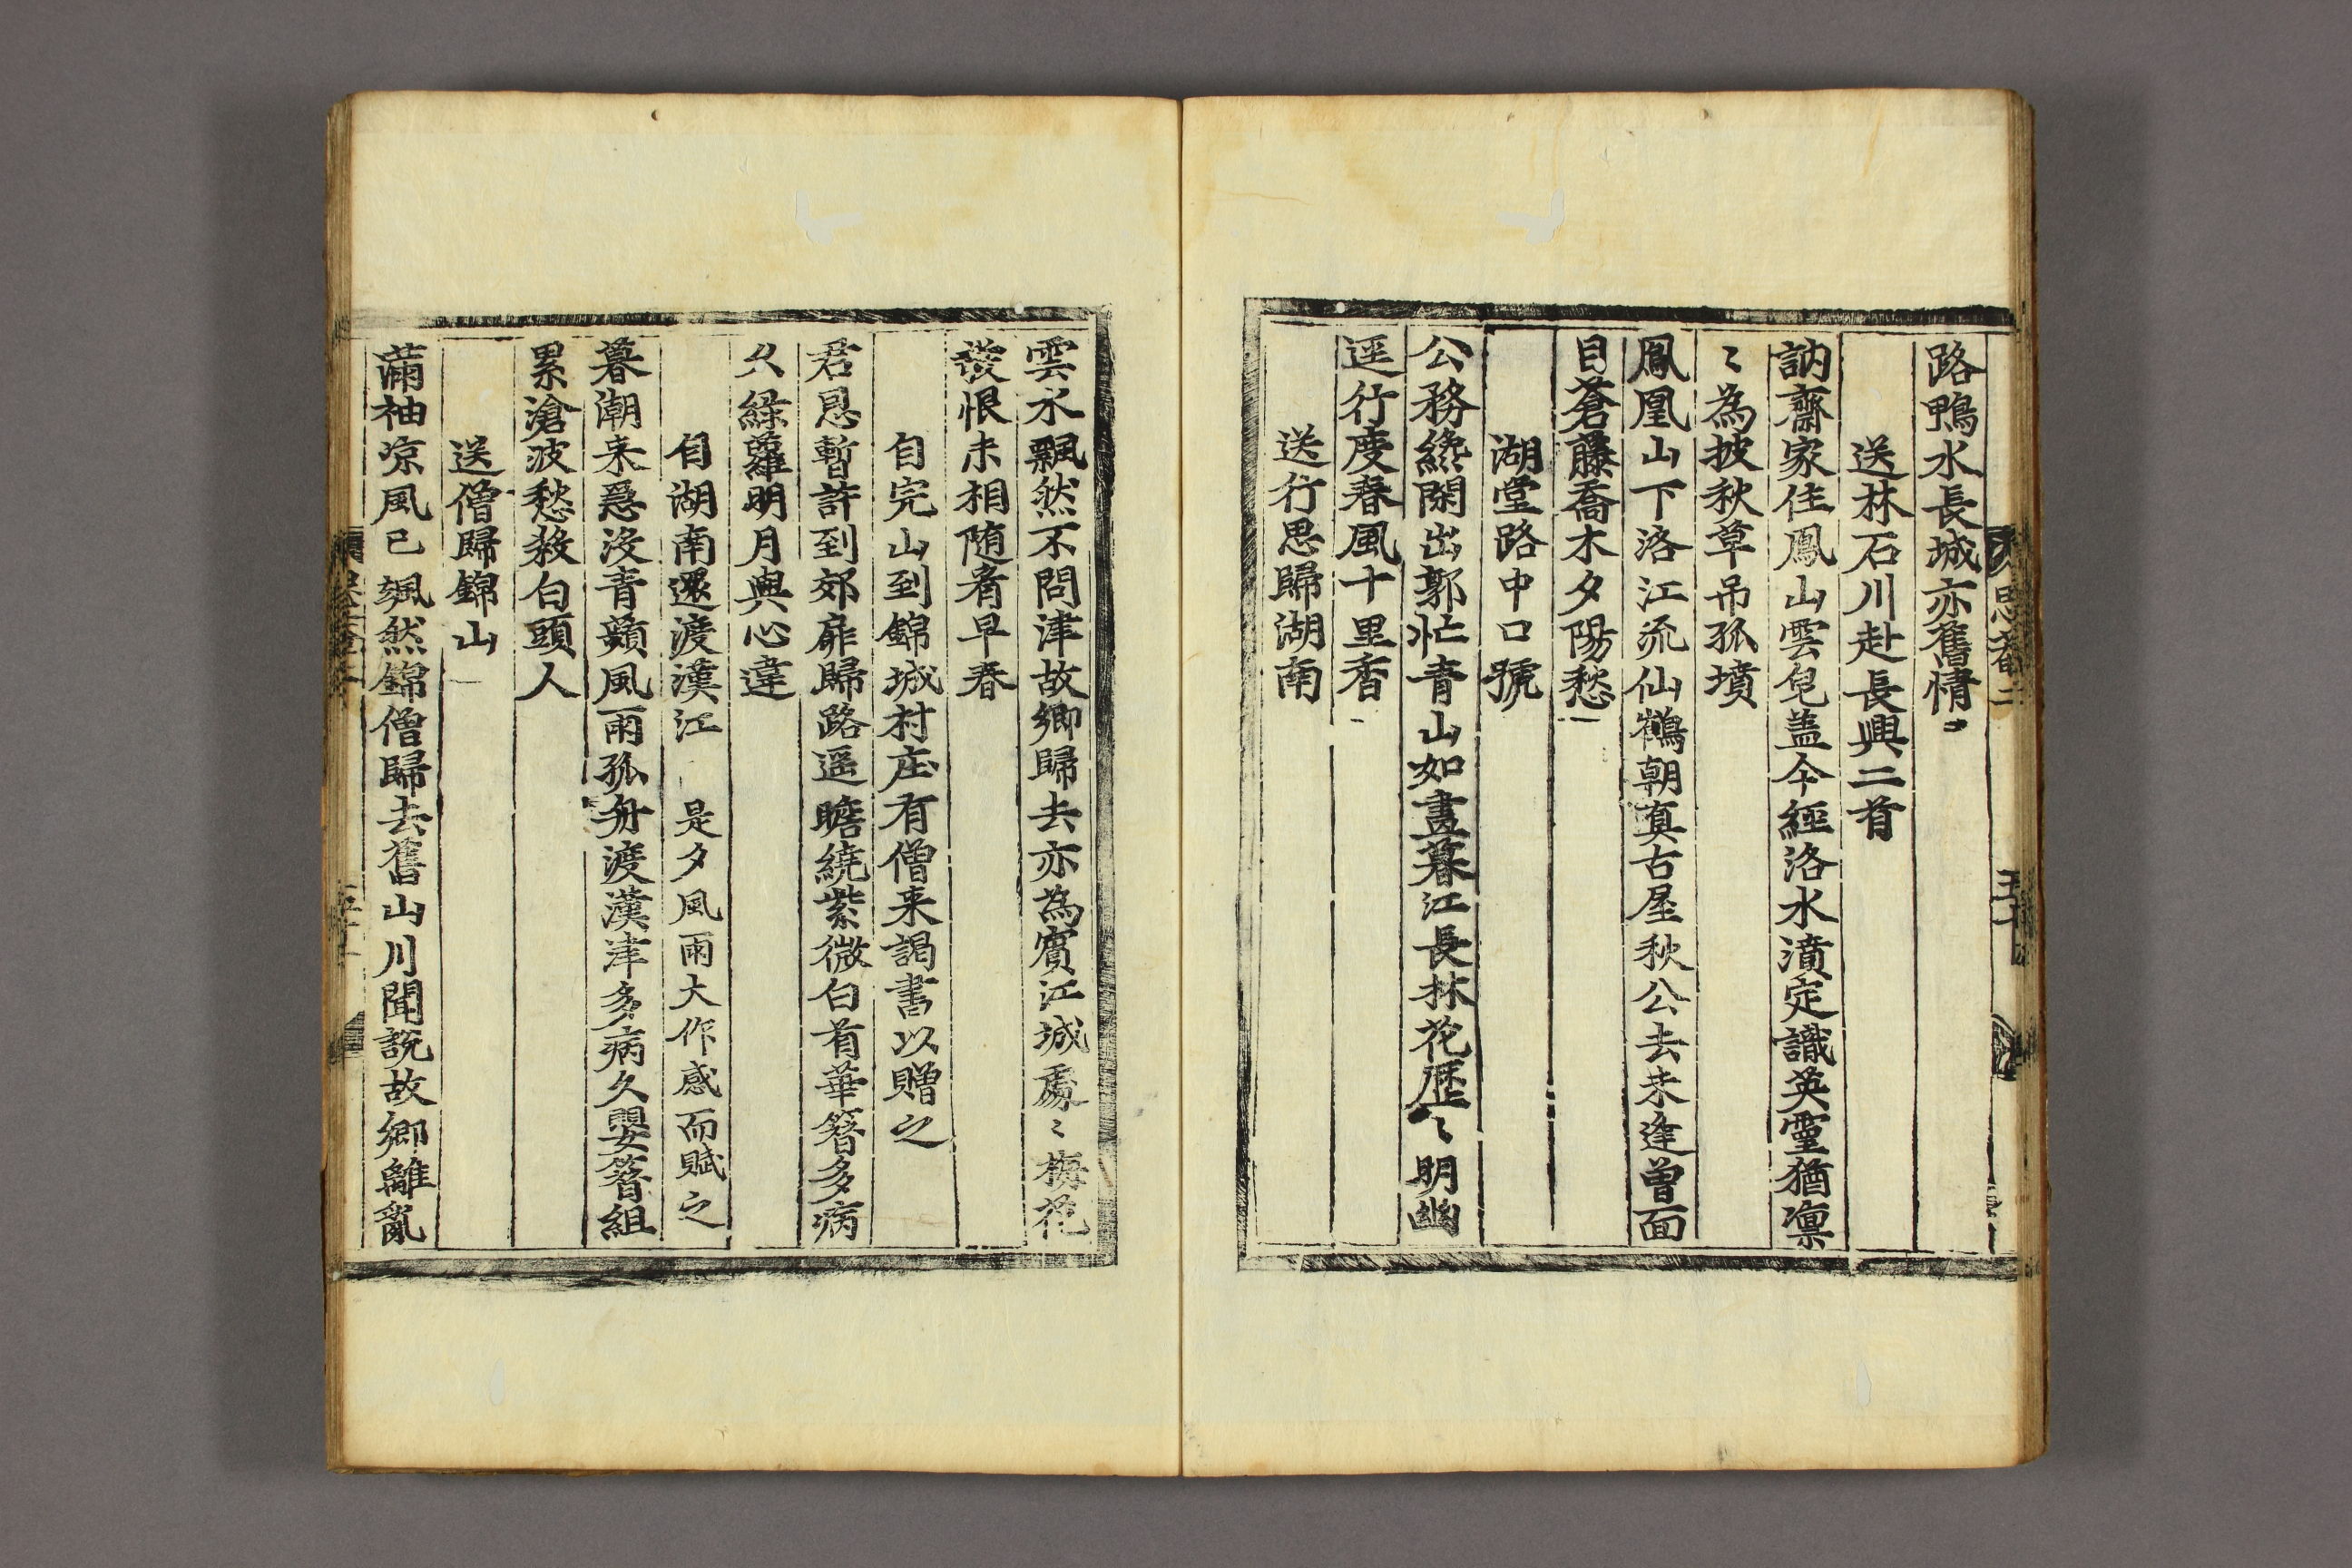 路鴨水長城亦舊情
送林石川赴長興二首
訥齋家住鳳山雲皂盖今經洛水濆定識英靈猶凛
〻為披秋草吊孤墳
鳳凰山下洛江流仙鶴朝真古屋秋公去未逢曾面
目蒼藤喬木夕陽愁
湖堂路中口號
公務纔閑出郭忙青山如畫暮江長林花歷〻明幽
逕行度春風十里香
送行思歸湖南
雲水飄然不問津故鄉歸去亦為賓江城處〻梅花
發恨未相随看早春
自完山到錦城村庄有僧来謁書以贈之
君恩暫許到郊扉歸路遥瞻繞紫微白首華簪多病
久綠蘿明月與心違
自湖南還渡漢江 是夕風雨大作感而賦之
暮潮来急没青蘋風雨孤舟渡漢津多病久嬰簪組
累滄波愁殺白頭人
送僧歸錦山
滿袖凉風已颯然錦僧歸去舊山川聞說故鄉離亂